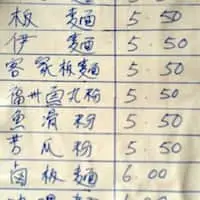 板 麵 5.50
伊 麵 5.50
客家板麵 5.50
福州丸粉 5.50
魚滑粉 5.50
苦瓜粉 5.50
鹵板麵 6.00